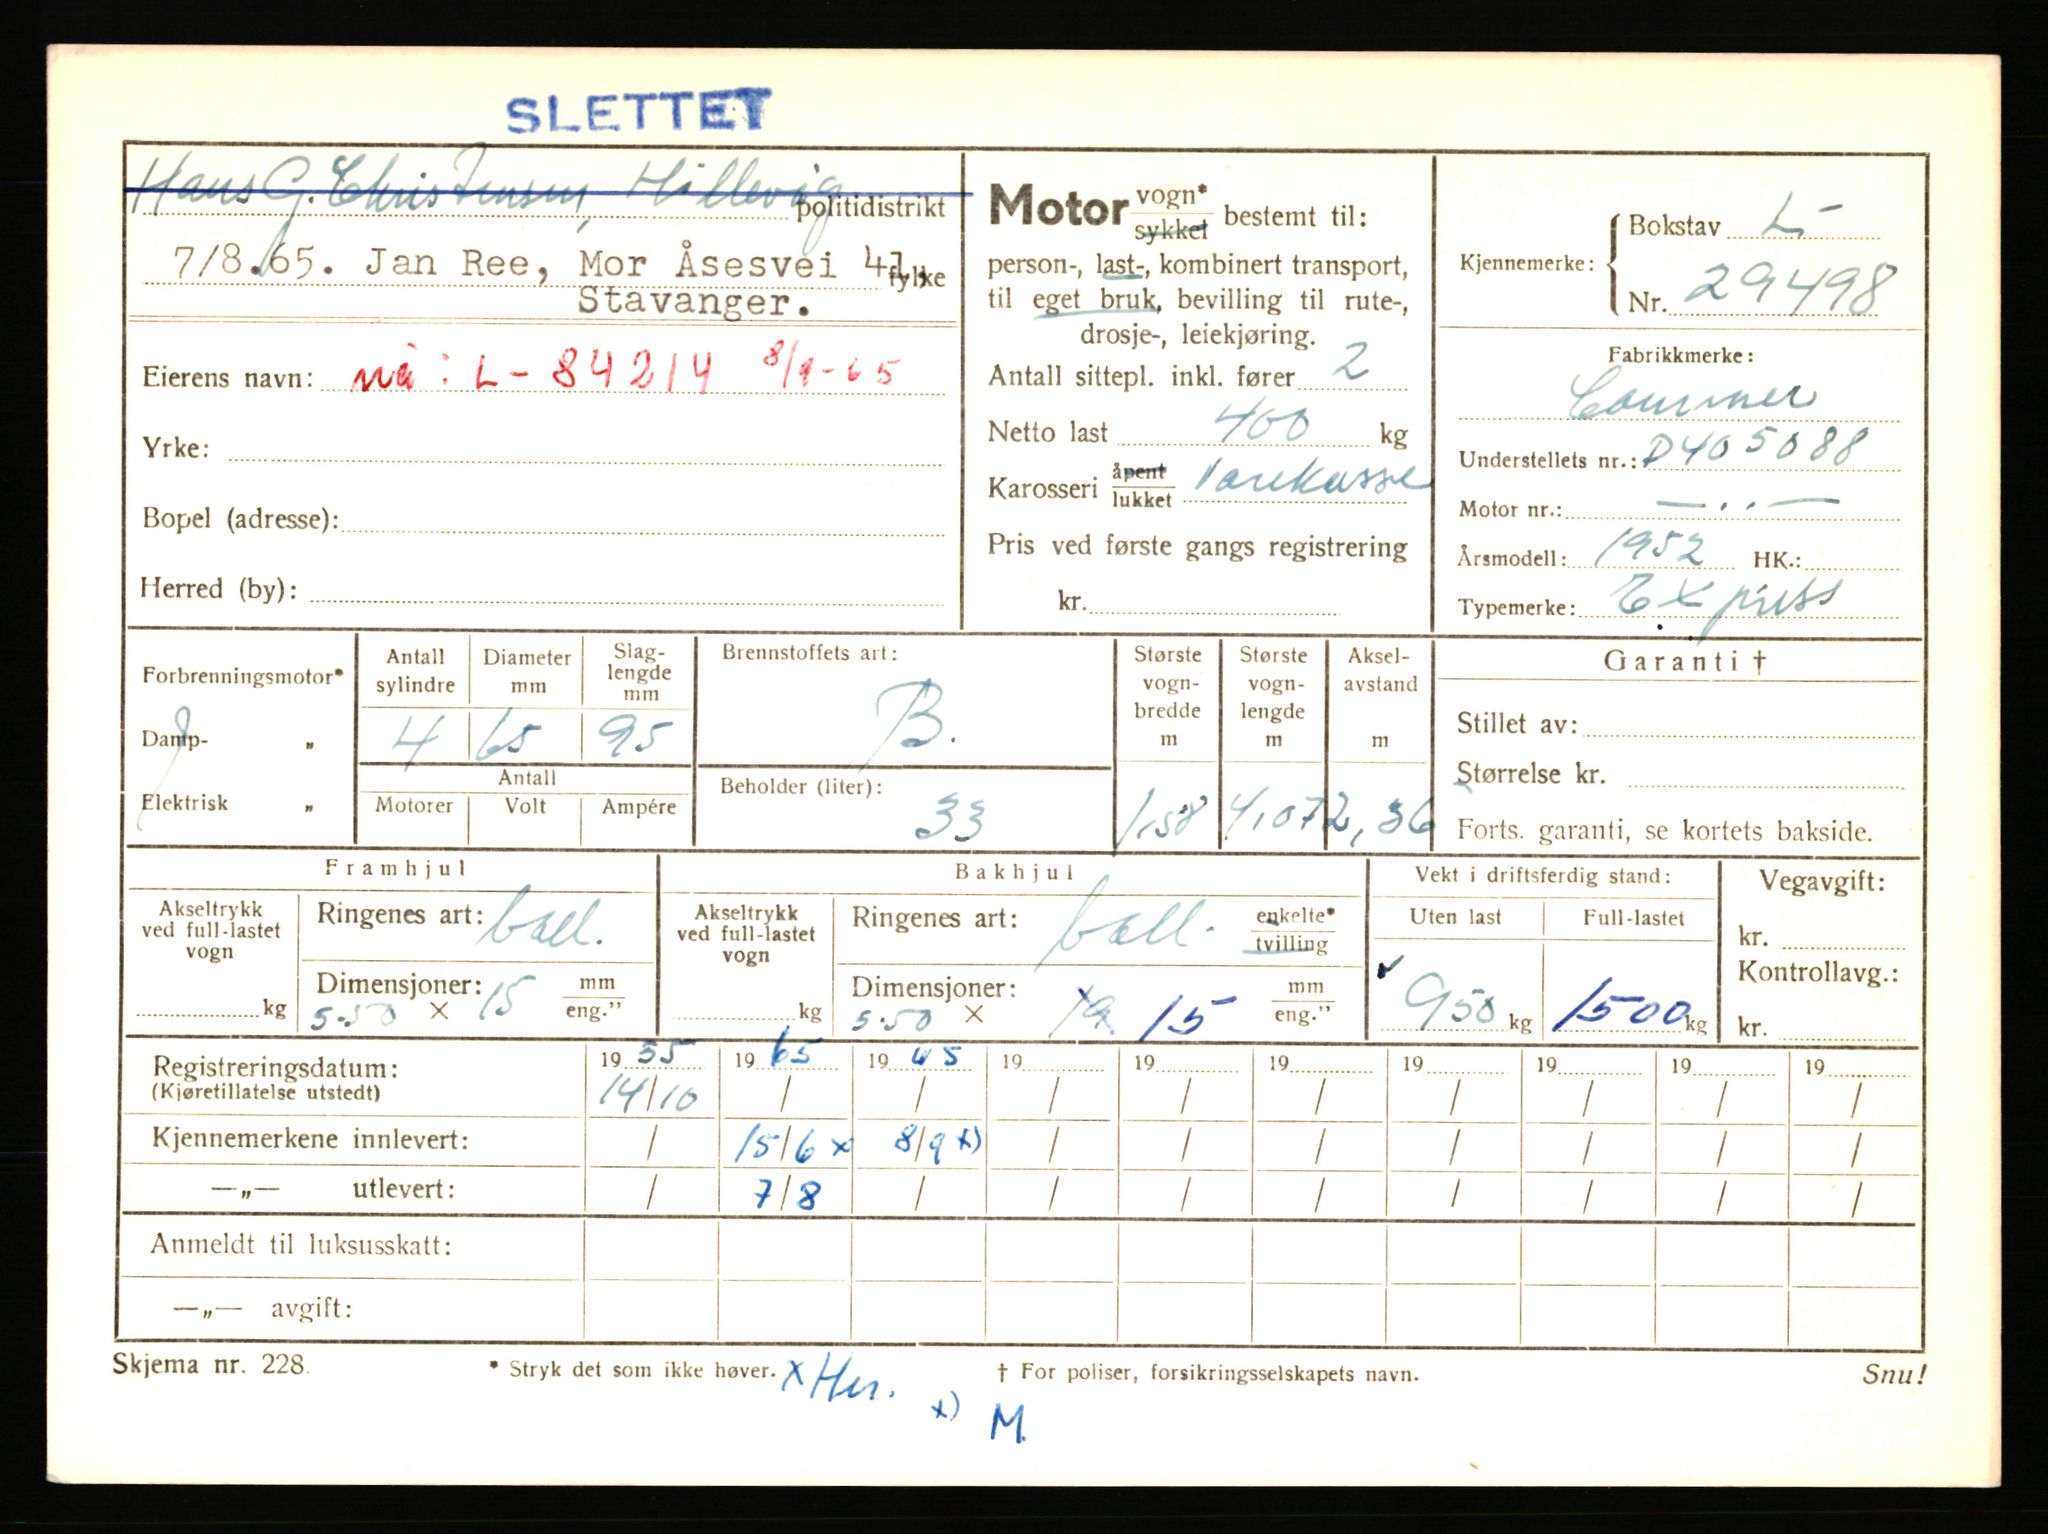 SLETTET
Hans G. Christensen, Hillevåg
politidistrikt
7/8.65. Jan Ree, Mor Åsesvei 41,
fylke
Stavanger.
Eierens navn: nå: L-84214 8/9-65
Yrke:
Bopel (adresse):
Herred (by):
Motor vogn* sykkel bestemt til:
person-, last-, kombinert transport,
til eget bruk, bevilling til rute-,
drosje-, leiekjøring.
Antall sittepl. inkl. fører 2
Netto last 400 kg
Karosseri åpent lukket Varekasse
Pris ved første gangs registrering
kr.
Kjennemerke: Bokstav L-
Nr. 29498
Fabrikkmerke:
Commer
Understellets nr.: D405088
Motor nr.: — . . —
Årsmodell: 1952 HK.:
Typemerke: Express
Forbrenningsmotor*
Damp- „
Elektrisk „
Antall sylindre 4
Diameter mm 65
Slag-lengde mm 95
Antall
Motorer Volt Ampére
Brennstoffets art: B.
Beholder (liter): 33
Største vogn-bredde m 1,58
Største vogn-lengde m 4,07
Aksel-avstand m 2,36
Garanti †
Stillet av:
Størrelse kr.
Forts. garanti, se kortets bakside.
Framhjul
Akseltrykk ved full-lastet vogn kg
Ringenes art: ball.
Dimensjoner: 5.50 × 15 mm eng."
Bakhjul
Akseltrykk ved full-lastet vogn kg
Ringenes art: ball. enkelte* tvilling
Dimensjoner: 5.50 × 15 mm eng."
Vekt i driftsferdig stand:
Uten last 950 kg
Full-lastet 1500 kg
Vegavgift:
kr.
Kontrollavg.:
kr.
Registreringsdatum: 19 55 19 65 19 65 19 19 19 19 19 19 19
(Kjøretillatelse utstedt) 14/10 / / / / / / / / /
Kjennemerkene innlevert: / 15/6 x 8/9 x) / / / / / / /
—„— utlevert: / 7/8 / / / / / / / /
Anmeldt til luksusskatt:
—„— avgift:
Skjema nr. 228. * Stryk det som ikke høver. † For poliser, forsikringsselskapets navn. Snu!
x Her.
x) M.